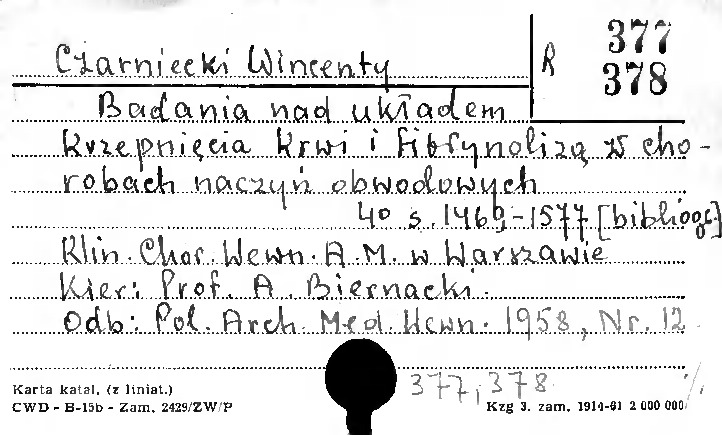 Czarniecki Wincenty
R 377
378
Badania nad układem
krzepnięcia krwi i fibrynolizą w cho-
robach naczyń obwodowych
40 s. 1469-1577 [bibliogr.]
Klin. Chor. Wewn. A.M. w Warszawie
Kier: Prof. A. Biernacki.
Odb: Pol. Arch. Med. Wewn. 1958, Nr. 12
377, 378
Karta katal. (z liniat.)
CWD - B-15b - Zam. 2429/ZW/P
Kzg 3. zam. 1914-61 2 000 000